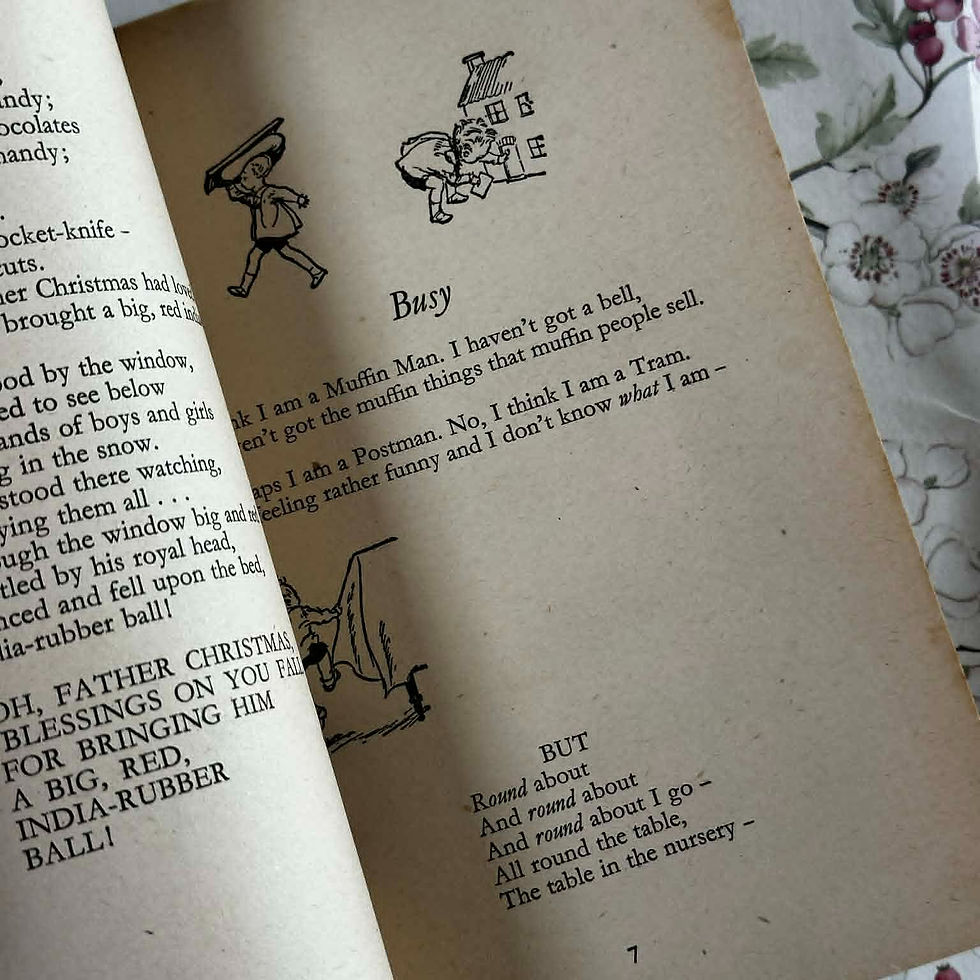 andy;
ocolates
handy;
.
ocket-knife –
cuts.
her Christmas had lov
brought a big, red in
ood by the window,
ed to see below
ands of boys and girls
g in the snow.
stood there watching,
ying them all . . .
ough the window big and re
tled by his royal head,
nced and fell upon the bed,
dia-rubber ball!
OH, FATHER CHRISTMAS,
BLESSINGS ON YOU FALL
FOR BRINGING HIM
A BIG, RED,
INDIA-RUBBER
BALL!
Busy
nk I am a Muffin Man. I haven't got a bell,
en't got the muffin things that muffin people sell.
aps I am a Postman. No, I think I am a Tram.
feeling rather funny and I don't know what I am –
BUT
Round about
And round about
And round about I go –
All round the table,
The table in the nursery –
7